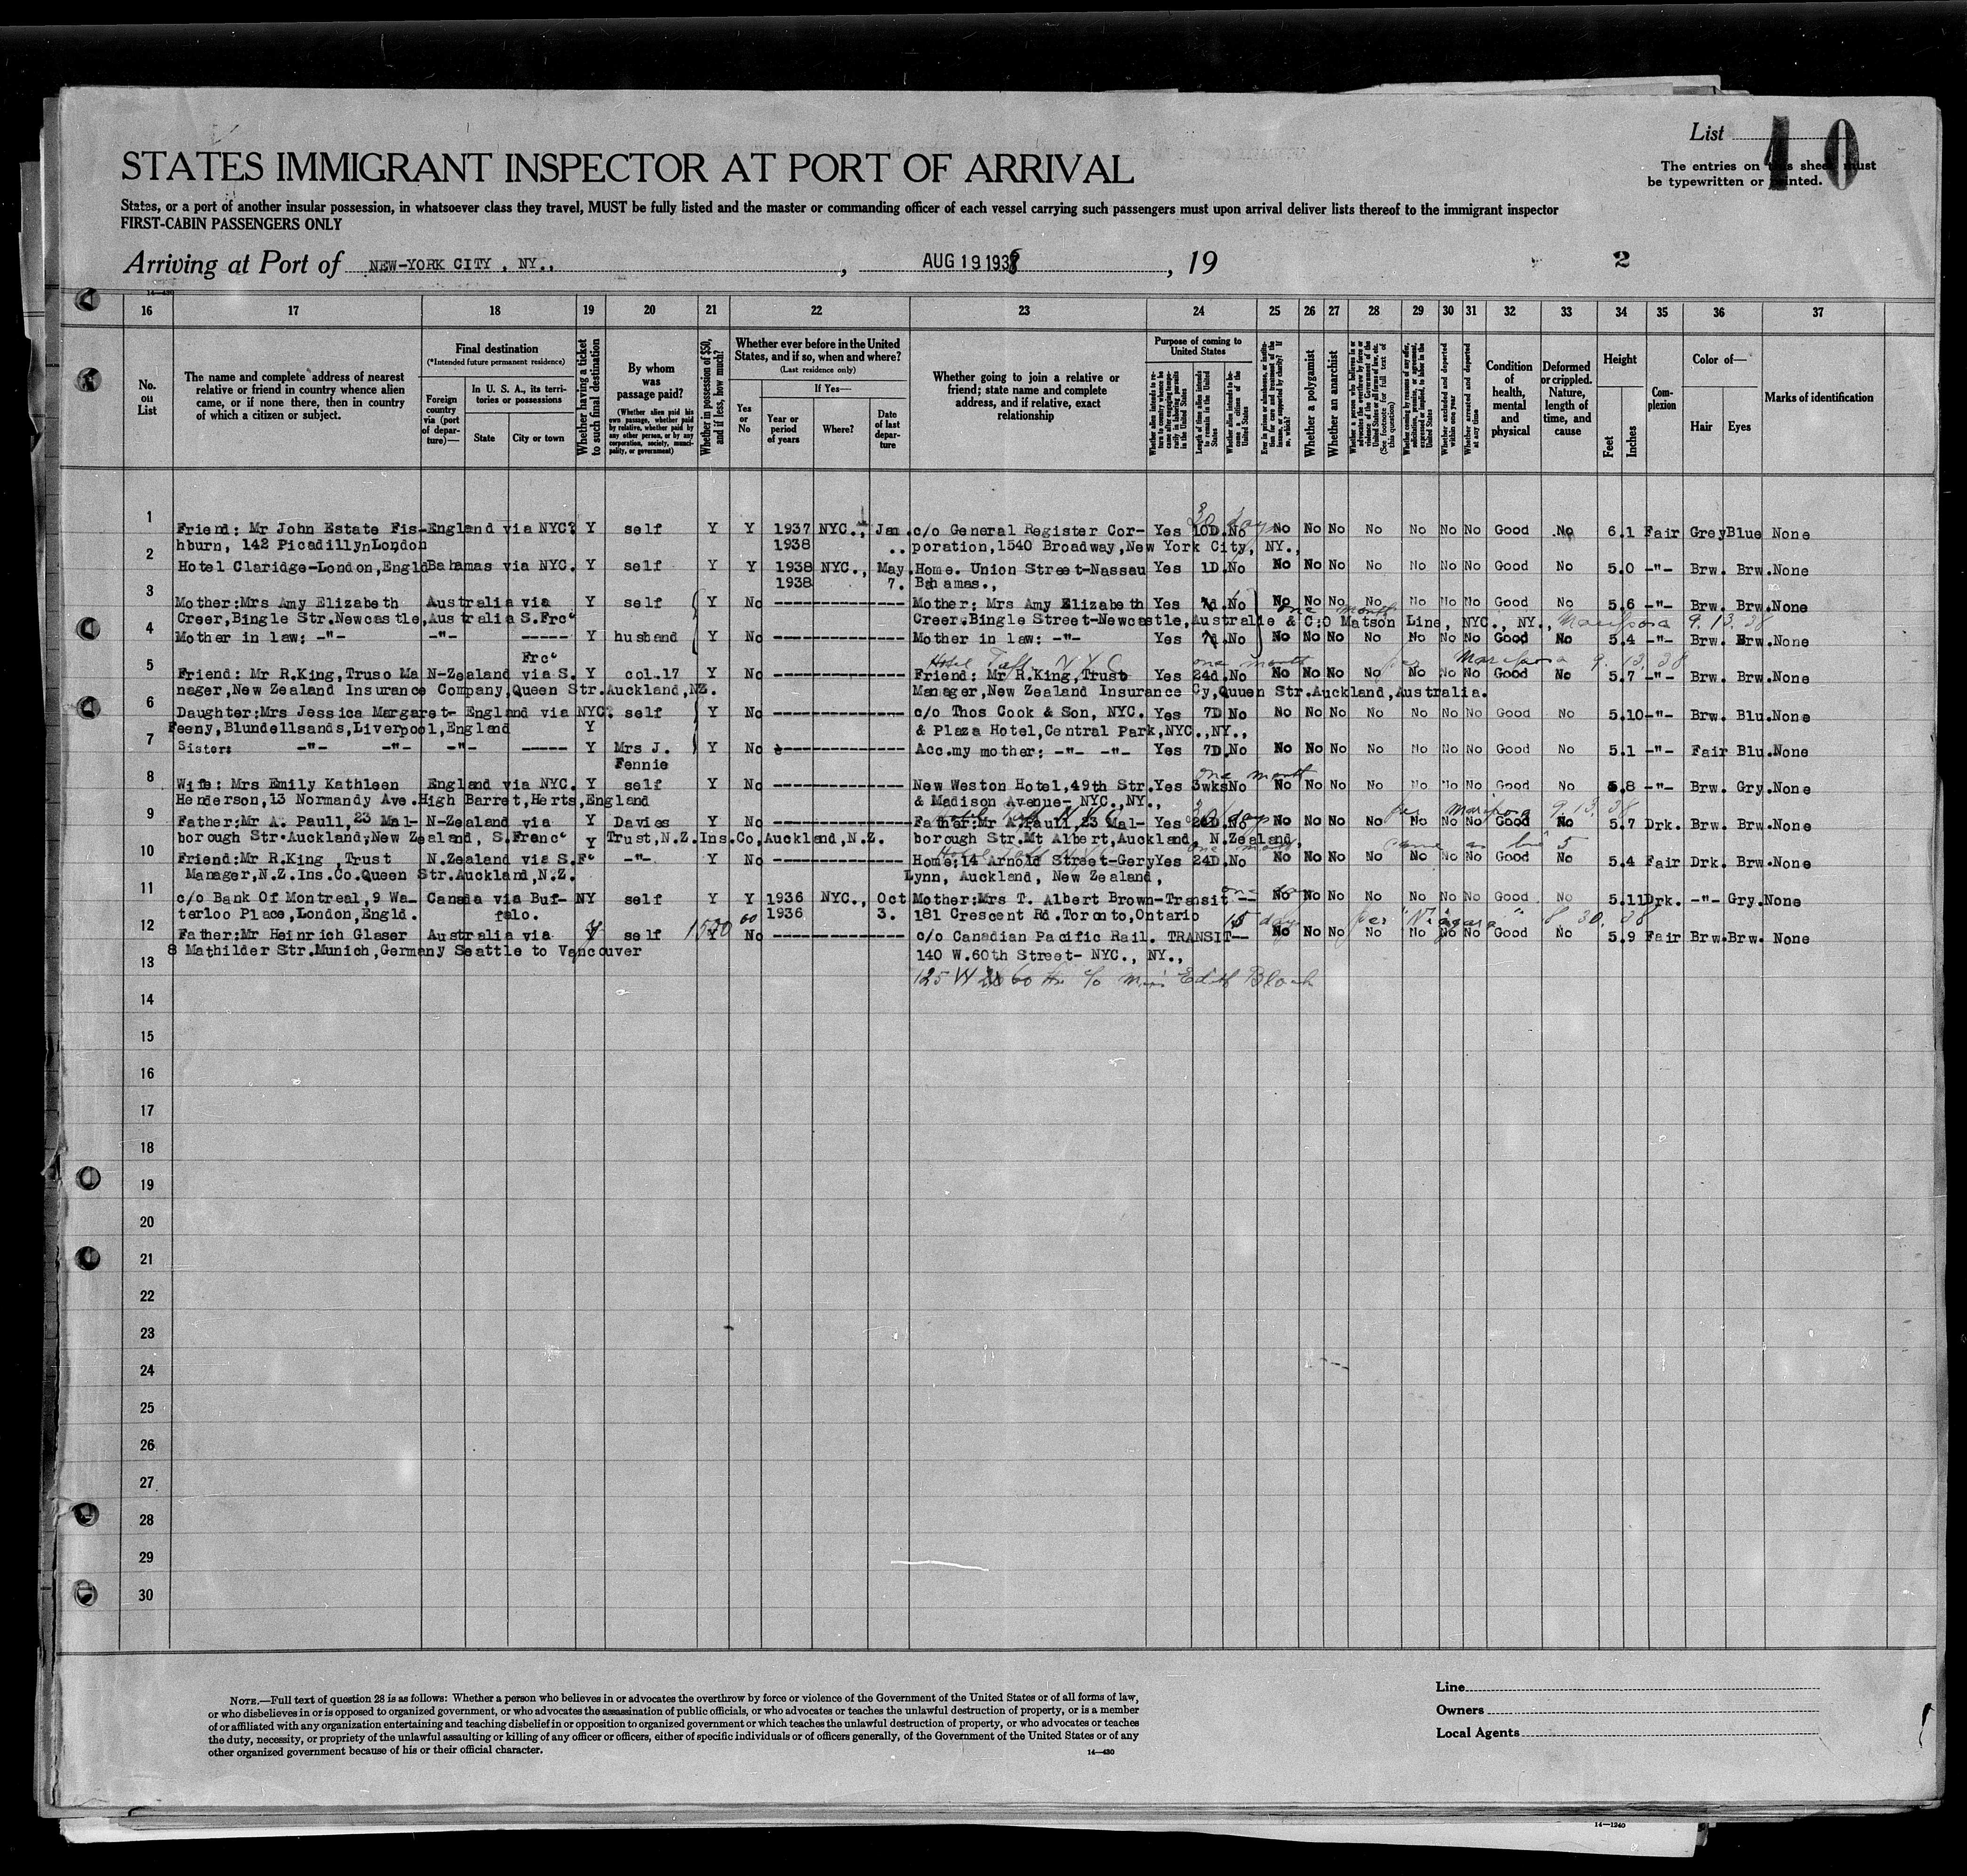 List 10
STATES IMMIGRANT INSPECTOR AT PORT OF ARRIVAL
The entries on this sheet must
be typewritten or printed.
States, or a port of another insular possession, in whatsoever class they travel, MUST be fully listed and the master or commanding officer of each vessel carrying such passengers must upon arrival deliver lists thereof to the immigrant inspector
FIRST-CABIN PASSENGERS ONLY
Arriving at Port of NEW-YORK CITY , NY., , AUG 19 1938 , 19 2
14-430
16 17 18 19 20 21 22 23 24 25 26 27 28 29 30 31 32 33 34 35 36 37
No. on List
The name and complete address of nearest relative or friend in country whence alien came, or if none there, then in country of which a citizen or subject.
Final destination
(*Intended future permanent residence)
Foreign country via (port of departure)—
In U. S. A., its territories or possessions
State
City or town
Whether having a ticket to such final destination
By whom was passage paid?
(Whether alien paid his own passage, whether paid by relative, whether paid by any other person, or by any corporation, society, municipality, or government)
Whether in possession of $50, and if less, how much?
Whether ever before in the United States, and if so, when and where?
(Last residence only)
Yes or No
If Yes—
Year or period of years
Where?
Date of last departure
Whether going to join a relative or friend; state name and complete address, and if relative, exact relationship
Purpose of coming to United States
Length of time alien intends to remain in the United States
Whether alien intends to become a citizen of the United States
Whether a polygamist
Whether an anarchist
(See footnote for full text of this question)
Whether excluded and deported within one year
Whether arrested and deported at any time
Condition of health, mental and physical
Deformed or crippled. Nature, length of time, and cause
Height
Feet
Inches
Complexion
Color of—
Hair
Eyes
Marks of identification
1 Friend: Mr John Estate Fis- England via NYC. Y self Y Y 1937 NYC., Jan. c/o General Register Cor- Yes 10D. No No No No No No No No Good No 6.1 Fair Grey Blue None
hburn, 142 PicadillynLondon 1938 .. poration,1540 Broadway,New York City, NY.,
2 Hotel Claridge-London,Engld Bahamas via NYC. Y self Y Y 1938 NYC., May Home. Union Street-Nassau Yes 1D. No No No No No No No No Good No 5.0 -"- Brw. Brw. None
1938 7. Bahamas.,
3 Mother:Mrs Amy Elizabeth Australia via Y self Y No -------------- Mother: Mrs Amy Elizabeth Yes 7d. No No No No No No No No Good No 5.6 -"- Brw. Brw. None
one month
Creer,Bingle Str.Newcastle,Australia S.Frco Creer.Bingle Street-Newcastle,Australie & C:O Matson Line, NYC., NY., Mariposa 9.13.38
4 Mother in law: -"- -"- ----- Y husband Y No -------------- Mother in law: -"- Yes 7d. No No No No No No No No Good No 5.4 -"- Brw. Brw. None
Frco Hotel Taft N Y C one month per Mariposa 9.13.38
5 Friend: Mr R.King, Truso Ma N-Zealand via S. Y col.17 Y No -------------- Friend: Mr R.King,Trust Yes 24d. No No No No No No No No Good No 5.7 -"- Brw. Brw. None
nager,New Zealand Insurance Company,Queen Str.Auckland,NZ. Manager,New Zealand Insurance Cy,Quuen Str.Auckland,Australia.
6 Daughter:Mrs Jessica Margaret- England via NYC. self Y No -------------- c/o Thos Cook & Son, NYC. Yes 7D No No No No No No No No Good No 5.10 -"- Brw. Blu. None
Feeny,Blundellsands,Liverpool,England Y & Plaza Hotel,Central Park,NYC.,NY.,
7 Sister: -"- -"- -"- ----- Y Mrs J. Y No -------------- Acc.my mother: -"- -"- Yes 7D. No No No No No No No No Good No 5.1 -"- Fair Blu. None
Fennie
one month
8 Wife: Mrs Emily Kathleen England via NYC. Y self Y No -------------- New Weston Hotel,49th Str. Yes 3wks No No No No No No No No Good No 5.8 -"- Brw. Gry. None
Henderson,13 Normandy Ave.High Barret,Herts,England & Madison Avenue- NYC.,NY.,
per Mariposa 9.13.38
9 Father:Mr A. Paull,23 Mal- N-Zealand via Y Davies Y No -------------- Father:Mr A.Paull,23 Mal- Yes 24D. No No No No No No No No Good No 5.7 Drk. Brw. Brw. None
borough Str.Auckland,New Zealand, S.Franco Y Trust,N.Z.Ins.Co,Auckland,N.Z. borough Str.Mt Albert,Auckland, N.Zealand.
one month same as line 5
10 Friend:Mr R.King ,Trust N.Zealand via S.Fo -"- Y No -------------- Home;14 Arnold Street-Gery Yes 24D. No No No No No No No No Good No 5.4 Fair Drk. Brw. None
Manager,N.Z.Ins.Co.Queen Str.Auckland,N.Z. Lynn, Auckland, New Zealand,
11 c/o Bank Of Montreal,9 Wa- Canada via Buf- NY self Y Y 1936 NYC., Oct Mother:Mrs T. Albert Brown-Transit -- No No No No No No No Good No 5.11 Drk. -"- Gry. None
terloo Place,London,Engld. falo. 1936 3. 181 Crescent Rd.Toronto,Ontario 15 days per "Niagara" 8.30.38
12 Father:Mr Heinrich Glaser Australia via Y self 1500 Y No -------------- c/o Canadian Pacific Rail. TRANSIT-- No No No No No No No Good No 5.9 Fair Brw. Brw. None
8 Mathilder Str.Munich,Germany Seattle to Vancouver 140 W.60th Street- NYC., NY.,
13 125 W 60 c/o Edith Bloch
14
15
16
17
18
19
20
21
22
23
24
25
26
27
28
29
30
NOTE.—Full text of question 28 is as follows: Whether a person who believes in or advocates the overthrow by force or violence of the Government of the United States or of all forms of law,
or who disbelieves in or is opposed to organized government, or who advocates the assassination of public officials, or who advocates or teaches the unlawful destruction of property, or is a member
of or affiliated with any organization entertaining and teaching disbelief in or opposition to organized government or which teaches the unlawful destruction of property, or who advocates or teaches
the duty, necessity, or propriety of the unlawful assaulting or killing of any officer or officers, either of specific individuals or of officers generally, of the Government of the United States or of any
other organized government because of his or their official character.
14-430
Line
Owners
Local Agents
14-1240